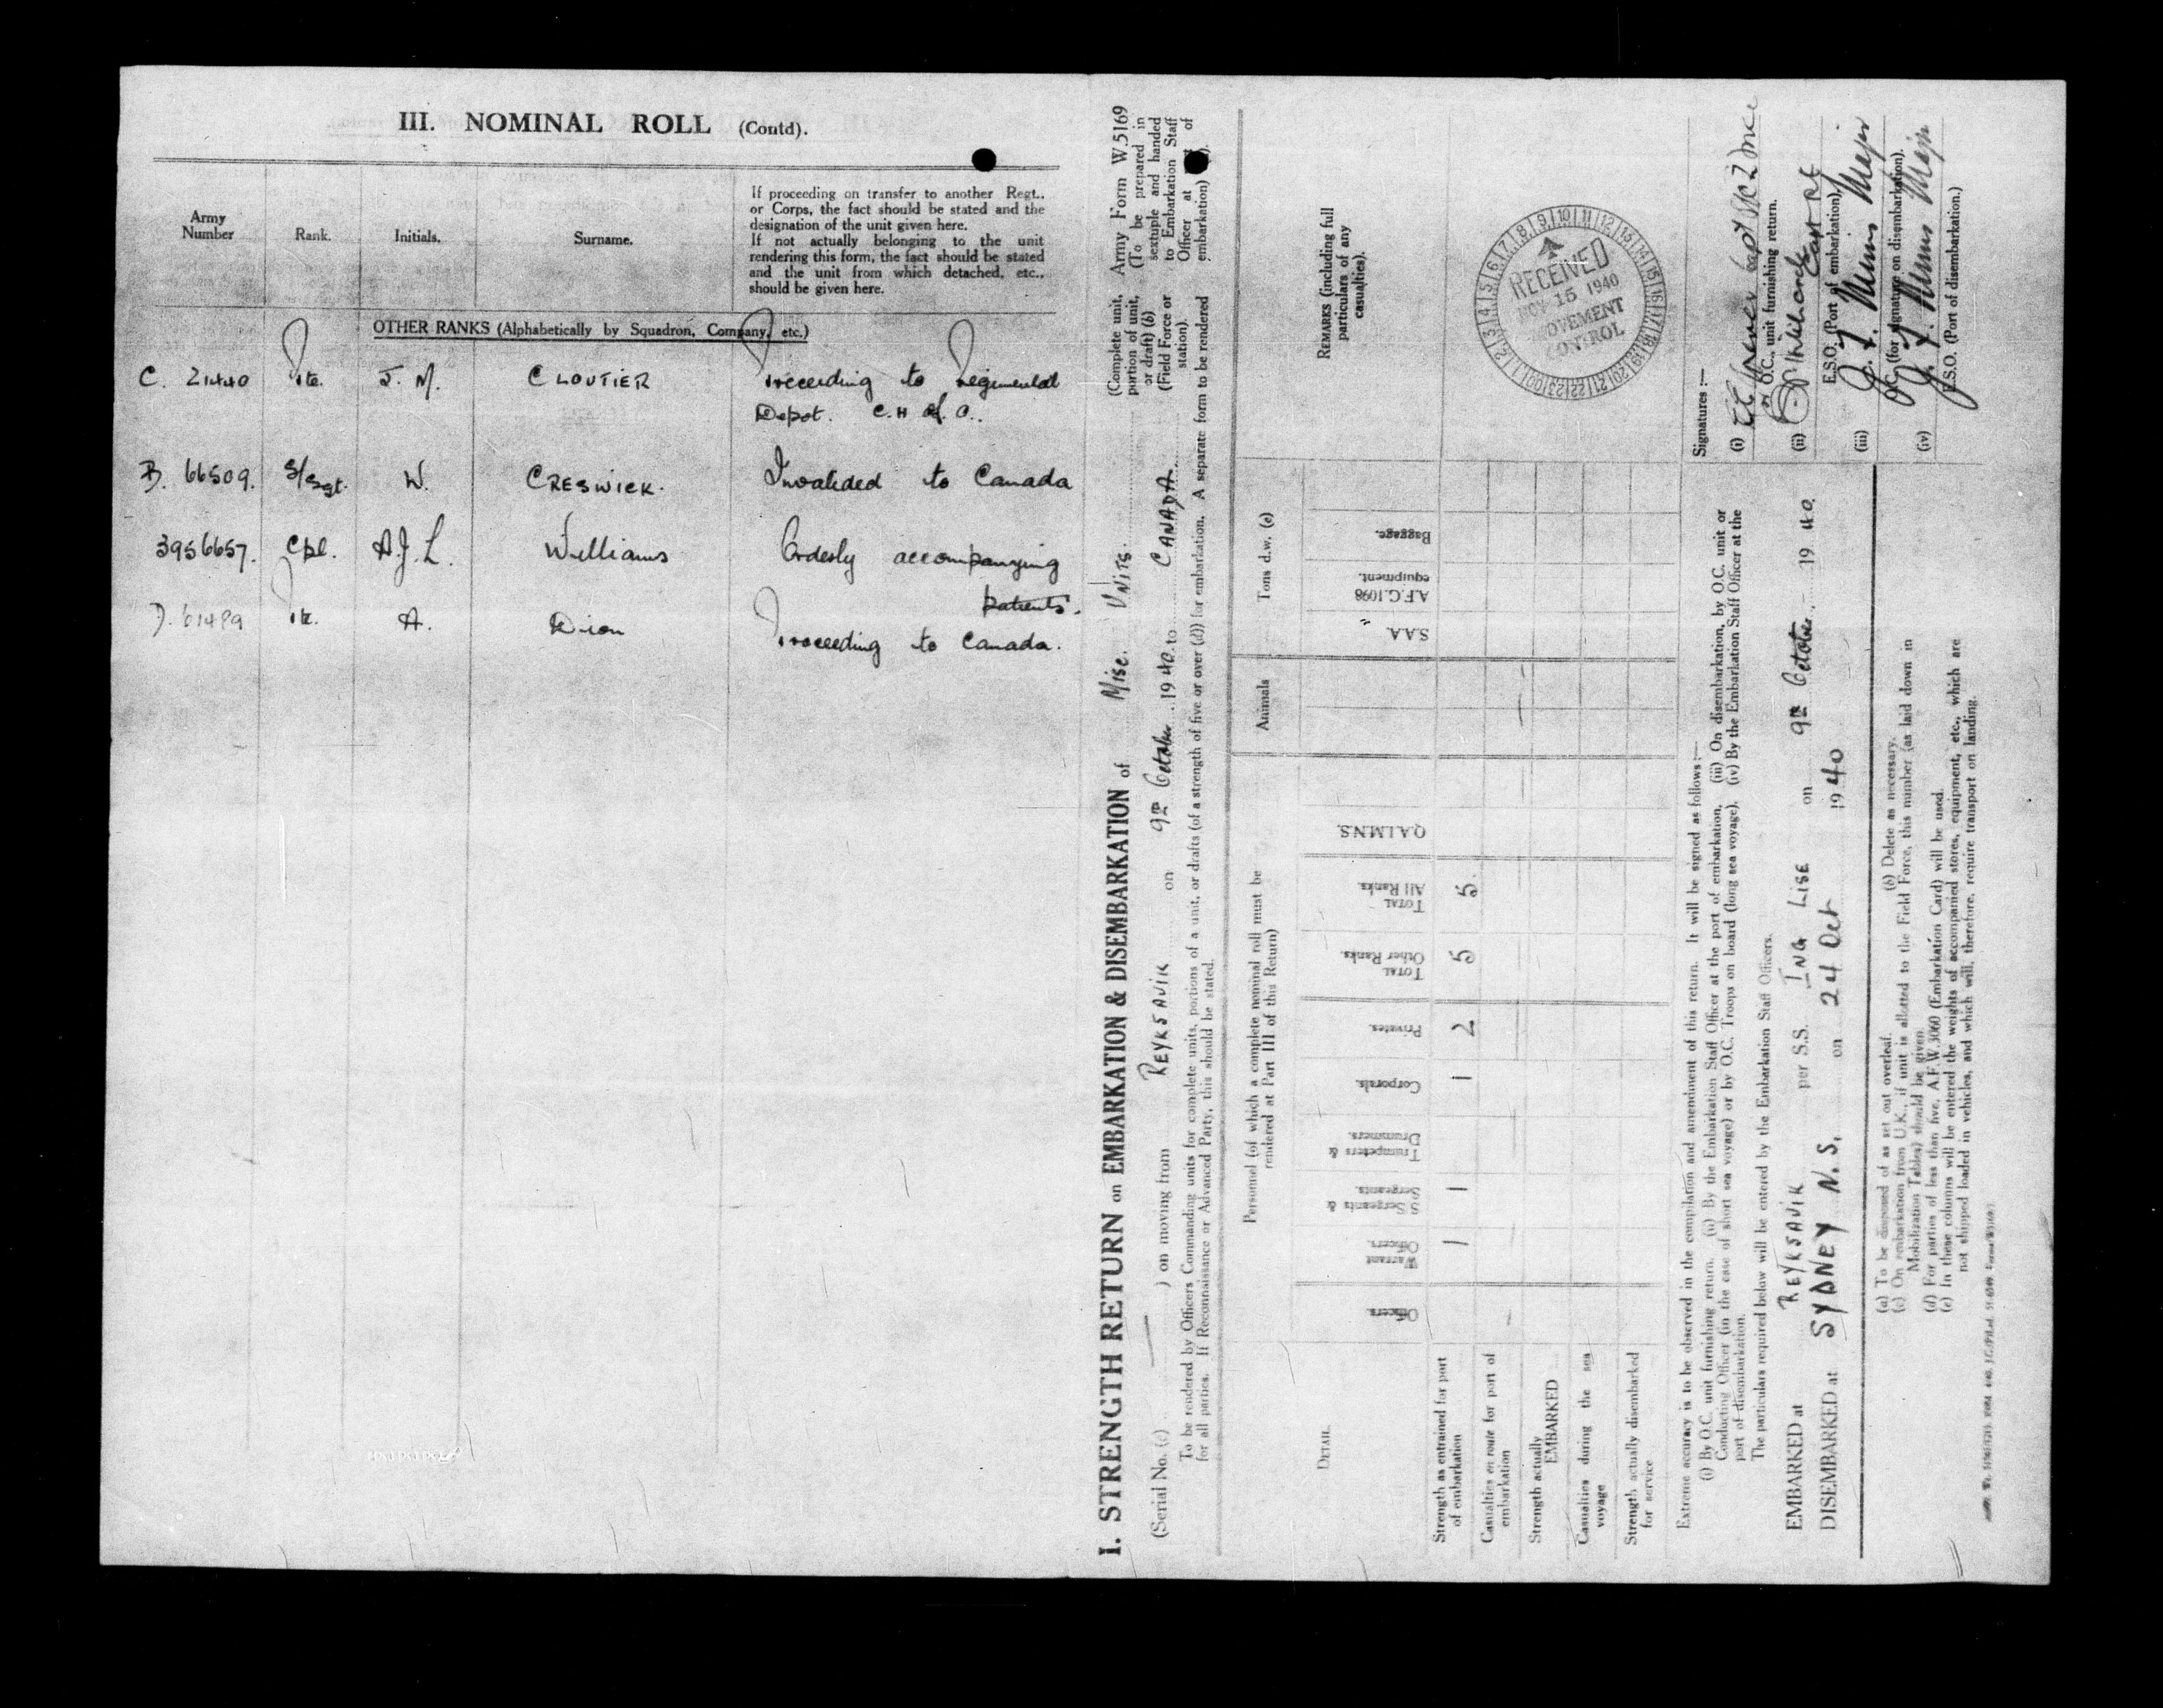 III. NOMINAL ROLL (Contd).
Army Number
Rank.
Initials.
Surname.
If proceeding on transfer to another Regt.,
or Corps, the fact should be stated and the
designation of the unit given here.
If not actually belonging to the unit
rendering this form, the fact should be stated
and the unit from which detached, etc.,
should be given here.
OTHER RANKS (Alphabetically by Squadron, Company, etc.)
C. 21440 Pte. J. M. CLOUTIER Proceeding to Regimental
Depot. C.H of O..
B. 66509. S/Sgt. W. CRESWICK. Invalided to Canada
3956657. Cpl. A.J.L. Williams Orderly accompanying
patients.
D. 61489 Pte. A. Dion Proceeding to Canada.
Army Form W.5169
(To be prepared in
sextuple and handed
to Embarkation Staff
Officer at of
embarkation)
I. STRENGTH RETURN on EMBARKATION & DISEMBARKATION of Misc. Units.
(Complete unit,
portion of unit,
or draft) (b)
(Serial No. (c) ) on moving from REYKJAVIK on 9th October 1940 to CANADA
(Field Force or
station).
To be rendered by Officers Commanding units for complete units, portions of a unit, or drafts (of a strength of five or over (d)) for embarkation. A separate form to be rendered
for all parties. If Reconnaissance or Advanced Party, this should be stated.
DETAIL.
Personnel (of which a complete nominal roll must be
rendered at Part III of this Return)
Animals
Tons d.w. (e)
REMARKS (including full
particulars of any
casualties).
Officers.
Warrant Officers.
S/Sergeants & Sergeants.
Trumpeters & Drummers.
Corporals.
Privates.
TOTAL Other Ranks.
TOTAL All Ranks.
Q.A.I.M.N.S.
S.A.A.
A.F.G.1098 equipment.
Baggage.
Strength as entrained for port
of embarkation
1 1 1 2 5 5.
Casualties en route for port of
embarkation
Strength actually
EMBARKED
Casualties during the sea
voyage
Strength actually disembarked
for service
RECEIVED
NOV 15 1940
MOVEMENT
CONTROL
Extreme accuracy is to be observed in the compilation and amendment of this return. It will be signed as follows:—
(i) By O.C. unit furnishing return. (ii) By the Embarkation Staff Officer at the port of embarkation. (iii) On disembarkation, by O.C. unit or
Conducting Officer (in the case of short sea voyage) or by O.C. Troops on board (long sea voyage). (iv) By the Embarkation Staff Officer at the
port of disembarkation.
The particulars required below will be entered by the Embarkation Staff Officers.
EMBARKED at REYKJAVIK per S.S. ING LISE on 9th October 1940.
DISEMBARKED at SYDNEY N.S. on 24 Oct 1940
Signatures:—
(i)
O.C., unit furnishing return.
(ii)
E.S.O. (Port of embarkation).
(iii) Major
OC (for signature on disembarkation).
(iv) Major
E.S.O. (Port of disembarkation.)
(a) To be disposed of as set out overleaf. (b) Delete as necessary.
(c) On embarkation from U.K., if unit is allotted to the Field Force, this number (as laid down in
Mobilization Tables) should be given.
(d) For parties of less than five, A.F.W.3060 (Embarkation Card) will be used.
(e) In these columns will be entered the weights of accompanied stores, equipment, etc., which are
not shipped loaded in vehicles, and which will, therefore, require transport on landing.